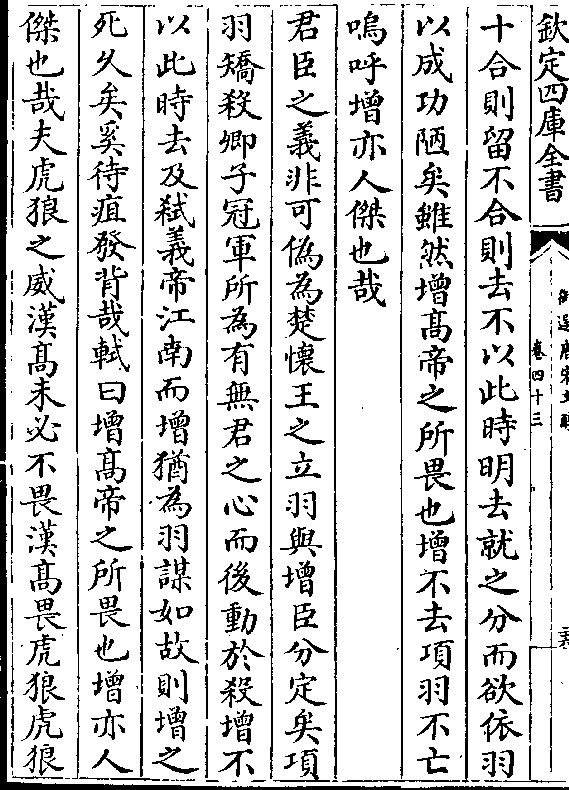 欽定四庫全書
御選唐宋文醇
卷四十三
十合則留不合則去不以此時明去就之分而欲依羽
以成功陋矣雖然增髙帝之所畏也增不去項羽不亡
嗚呼增亦人傑也哉
君臣之義非可偽為楚懷王之立羽與增臣分定矣項
羽矯殺卿子冠軍所為有無君之心而後動於殺增不
以此時去及弑義帝江南而增猶為羽謀如故則增之
死久矣奚待疽發背哉軾曰增髙帝之所畏也增亦人
傑也哉夫虎狼之威漢髙未必不畏漢髙畏虎狼虎狼